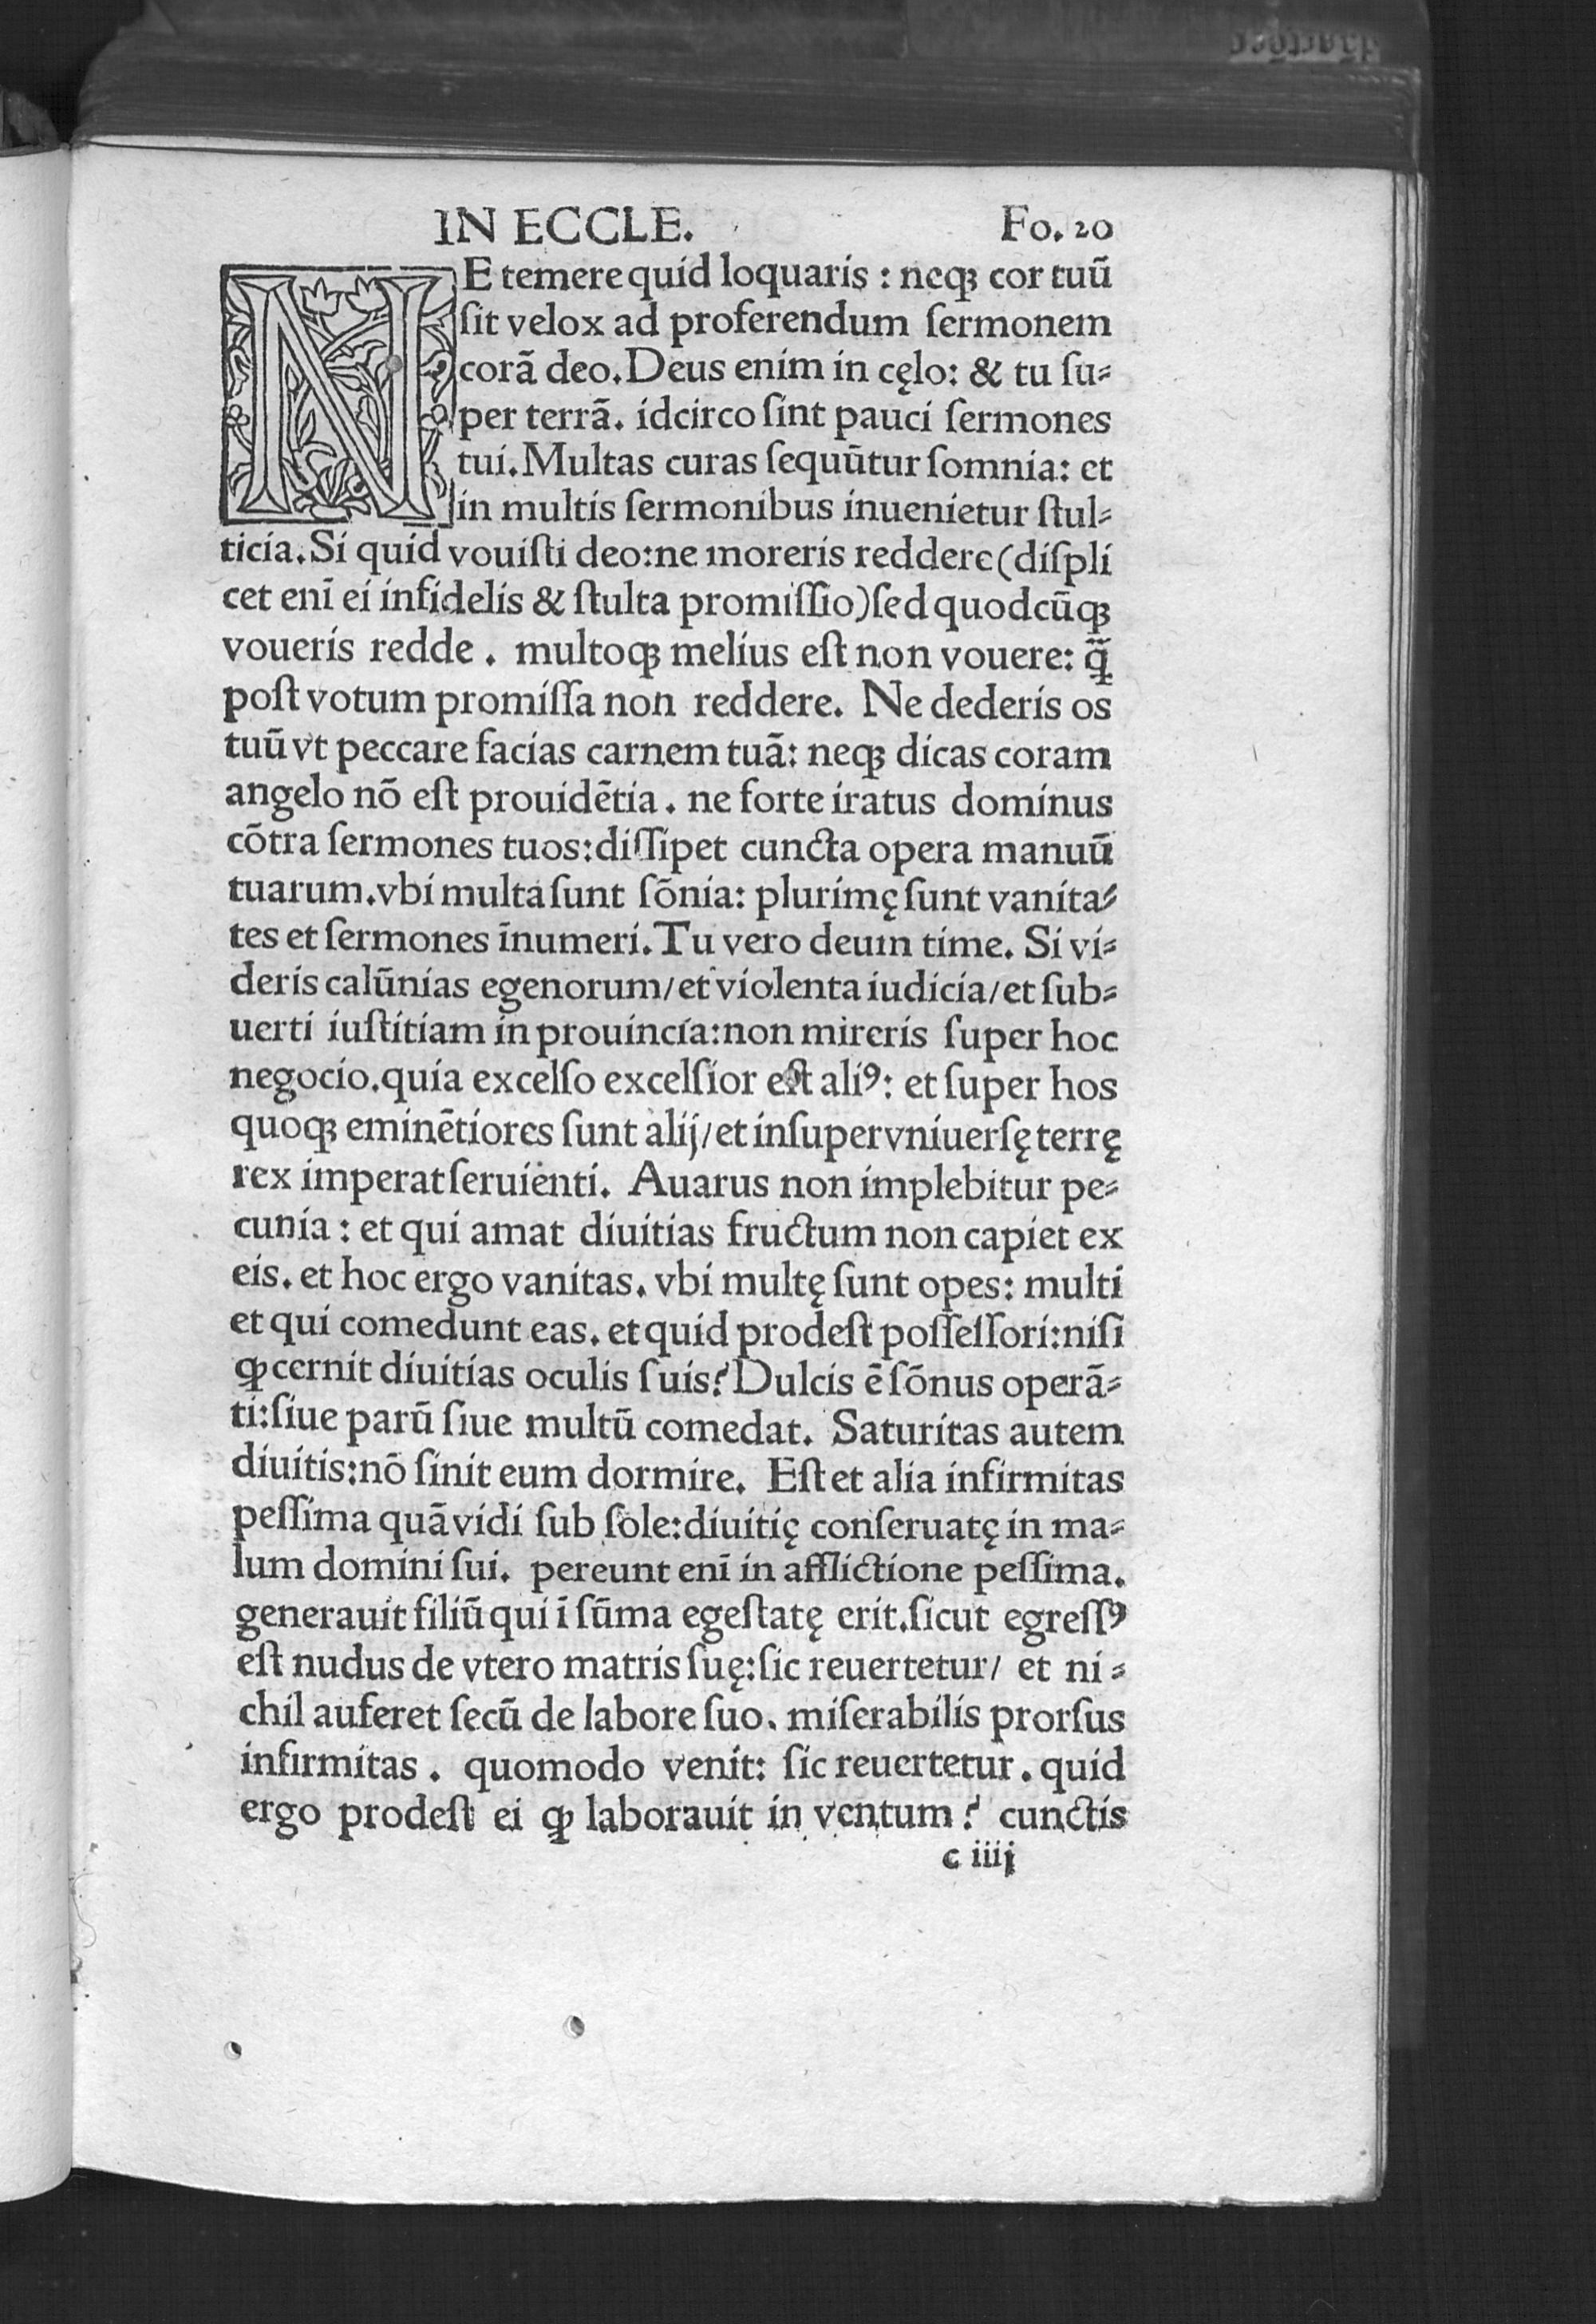 IN ECCLE. Fo. 20
NE temere quid loquaris : neqꝫ cor tuū
ſit velox ad proferendum ſermonem
corā deo. Deus enim in cęlo: & tu ſu⸗
per terrā. idcirco ſint pauci ſermones
tui. Multas curas ſequūtur ſomnia: et
in multis ſermonibus inuenietur ſtul⸗
ticia. Si quid vouiſti deo: ne moreris reddere (diſpli
cet enī ei infidelis & ſtulta promiſſio) ſed quodcūqꝫ
voueris redde . multoqꝫ melius eſt non vouere: q̄ꝫ
poſt votum promiſſa non reddere. Ne dederis os
tuū vt peccare facias carnem tuā: neqꝫ dicas coram
angelo nō eſt prouidētia . ne forte iratus dominus
cōtra ſermones tuos: diſſipet cuncta opera manuū
tuarum. vbi multa ſunt ſōnia: plurimę ſunt vanita⸗
tes et ſermones īnumeri. Tu vero deum time. Si vi⸗
deris calūnias egenorum/ et violenta iudicia/ et ſub⸗
uerti iuſtitiam in prouincia: non mireris ſuper hoc
negocio. quia excelſo excelſior eſt aliꝰ: et ſuper hos
quoqꝫ eminētiores ſunt alij/ et inſuper vniuerſę terrę
rex imperat ſeruienti. Auarus non implebitur pe⸗
cunia : et qui amat diuitias fructum non capiet ex
eis. et hoc ergo vanitas. vbi multę ſunt opes: multi
et qui comedunt eas. et quid prodeſt poſſeſſori: niſi
ꝙ cernit diuitias oculis ſuis? Dulcis ē ſōnus operā⸗
ti: ſiue parū ſiue multū comedat. Saturitas autem
diuitis: nō ſinit eum dormire. Eſt et alia infirmitas
peſſima quā vidi ſub ſole: diuitię conſeruatę in ma⸗
lum domini ſui. pereunt enī in afflictione peſſima.
generauit filiū qui ī ſūma egeſtatę erit. ſicut egreſſꝰ
eſt nudus de vtero matris ſuę: ſic reuertetur/ et ni⸗
chil auferet ſecū de labore ſuo. miſerabilis prorſus
infirmitas . quomodo venit: ſic reuertetur . quid
ergo prodeſt ei ꝙ laborauit in ventum ? cunctis
c iiij